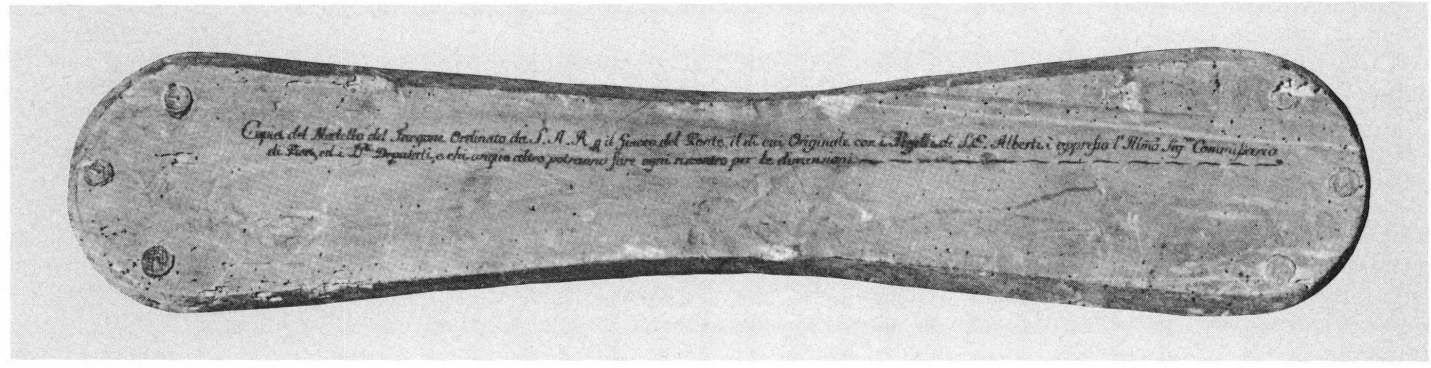 Copia del Modello del Targone Ordinato da S. A. R. p il Giuoco del Ponte, il di cui Originale con i Sigilli di S.E. Alberti è appresso l'Illmo Sig.re Commissario
di Pisa, ed i Deputati, e chi unque altro potranno fare ogni riscontro per le dimensioni